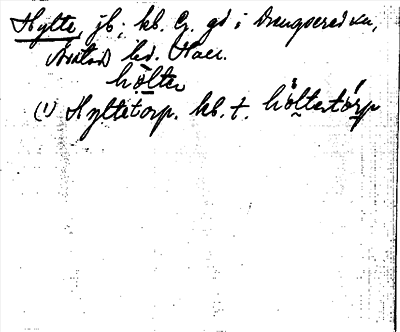 Hylte, jb; kb. Eg. gd i Drengsered sn,
Årstad hd. Hall.
hölte
(1) Hyltetorp. kb. t. höltetórp